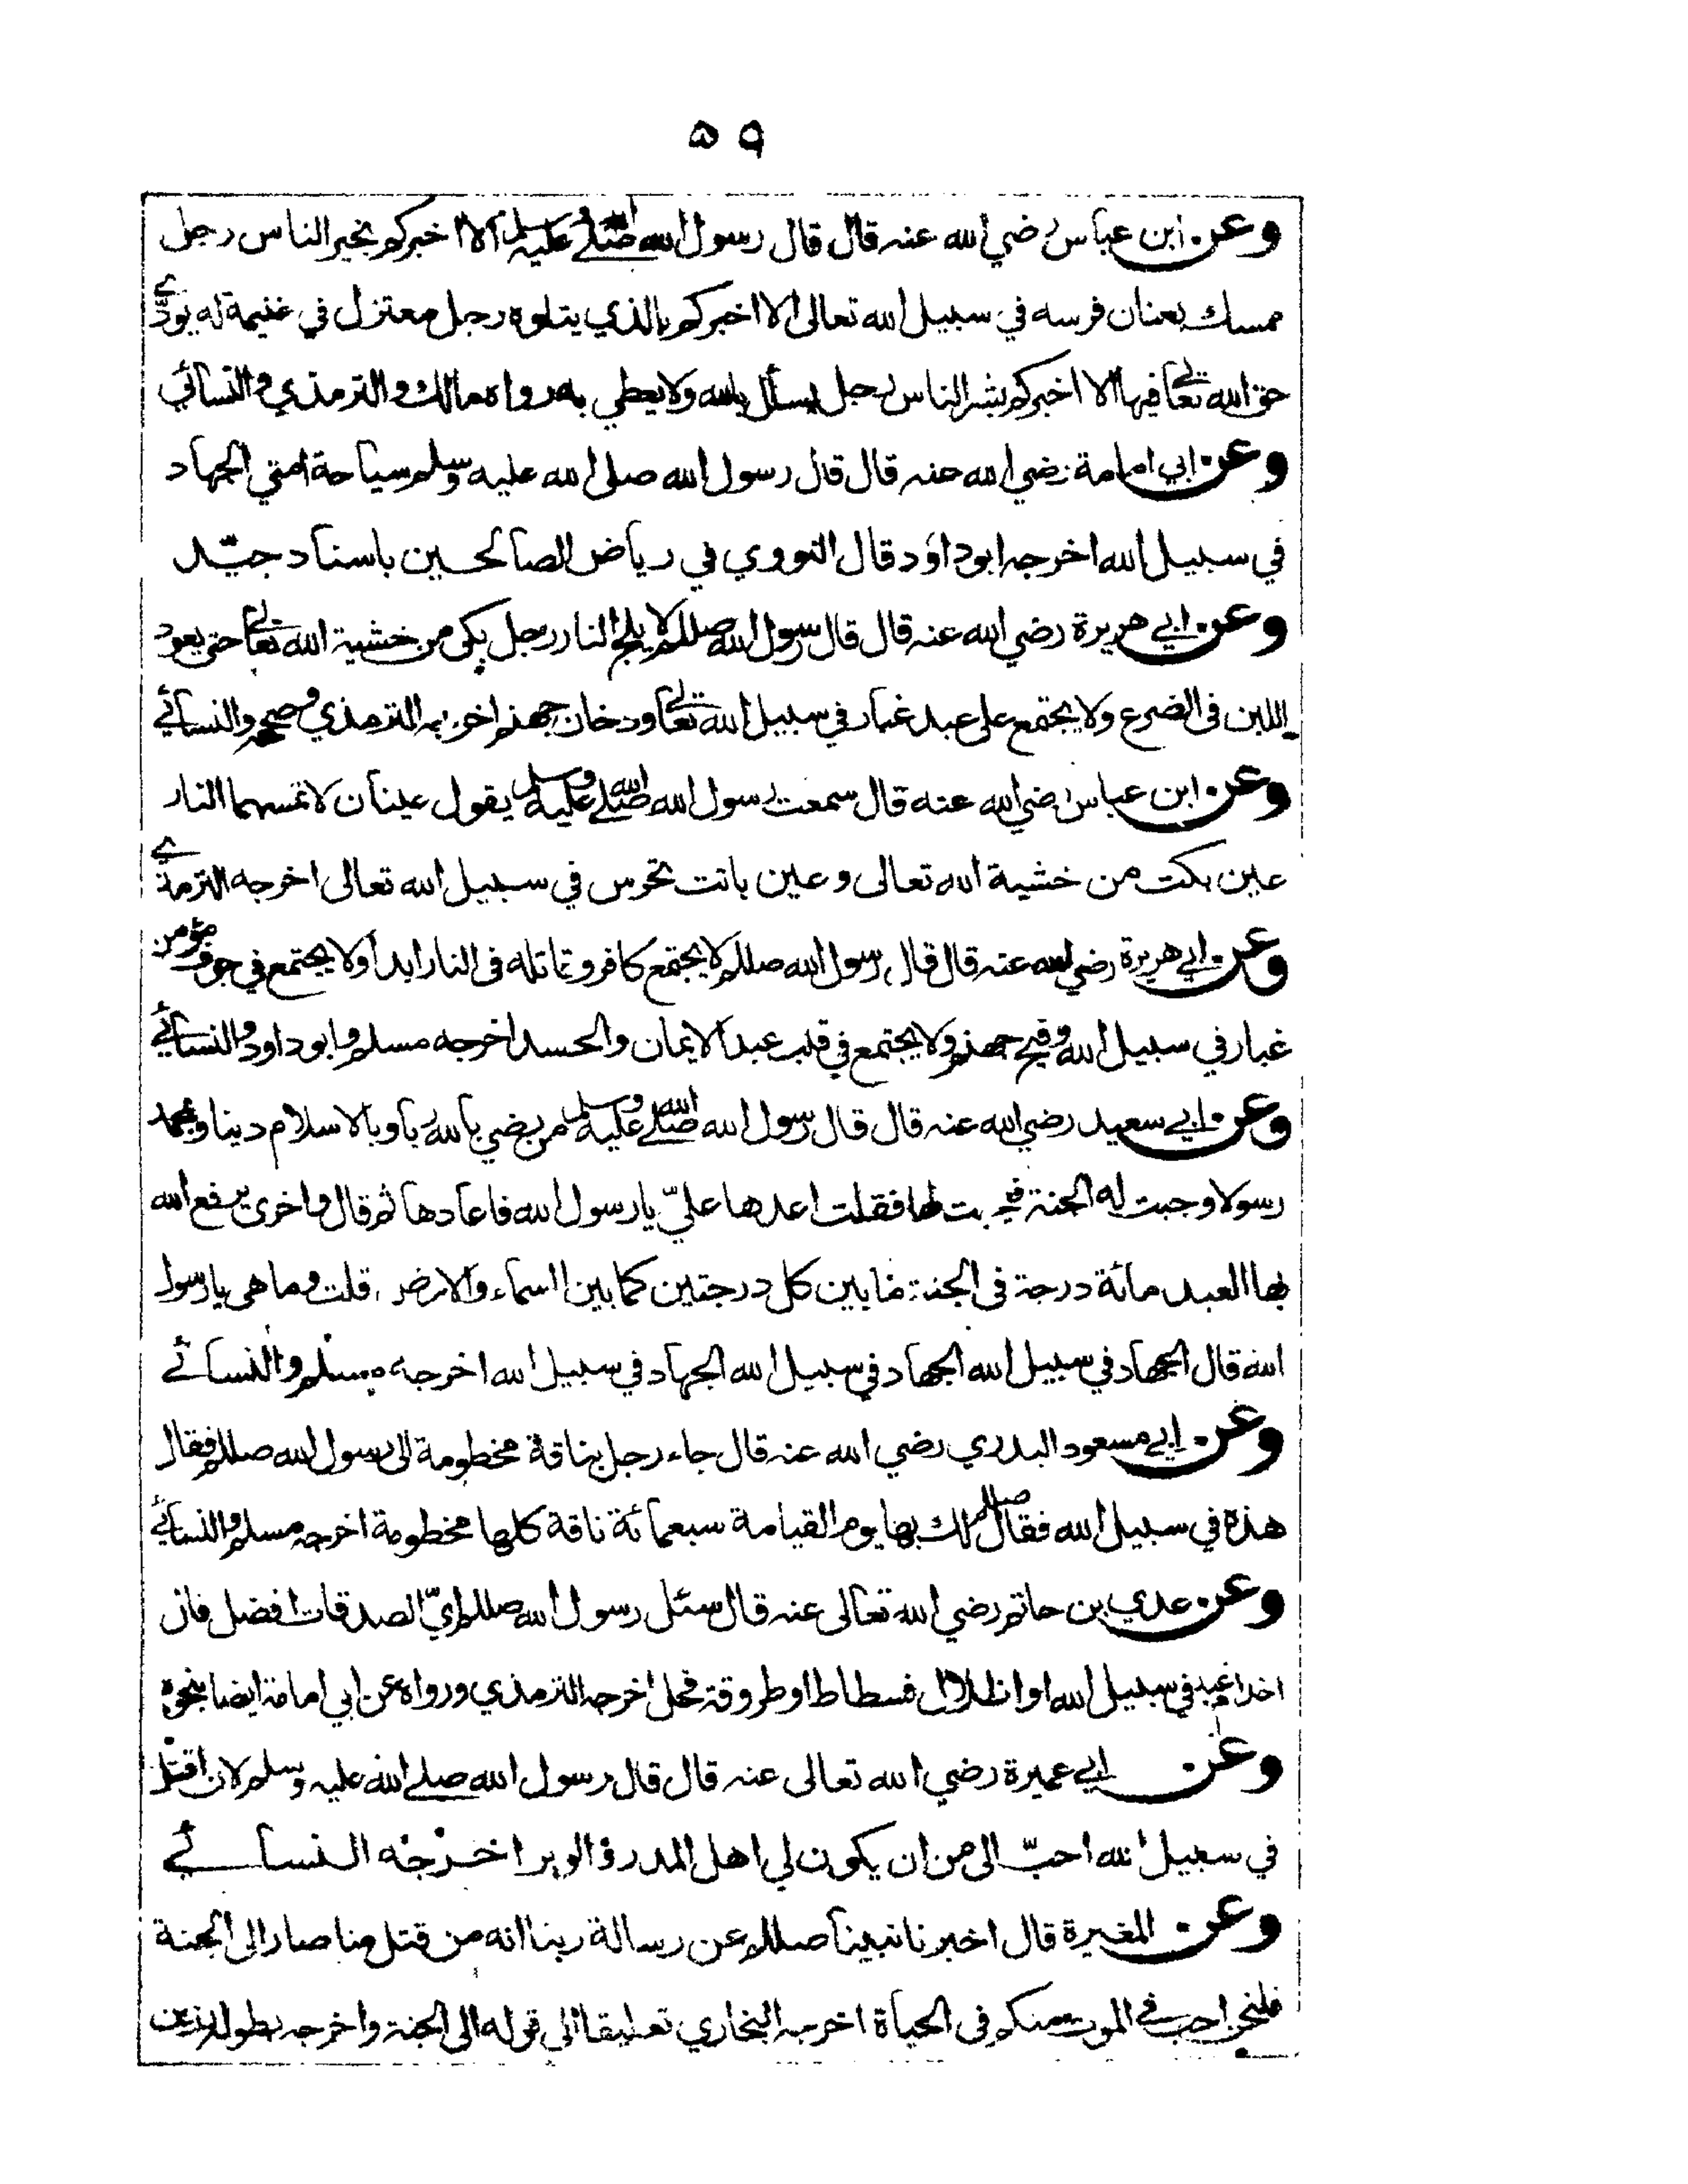 ٥٩
وعن ابن عباس رضي الله عنه قال قال رسول الله صلى الله عليه وسلم الا اخبركم بخير الناس رجل
ممسك بعنان فرسه في سبيل الله تعالى الا اخبركم بالذي يتلوه رجل معتزل في غنيمة له يودّي
حق الله تعالى فيها الا اخبركم بشر الناس رجل يسأل بالله ولا يعطي به رواه مالك والترمذي والنسائي
وعن ابي امامة رضي الله عنه قال قال رسول الله صلى الله عليه وسلم سياحة امتي الجهاد
في سبيل الله اخرجه ابو داؤد قال النووي في رياض الصالحين باسناد جيّد
وعن ابي هريرة رضي الله عنه قال قال رسول الله صللم لا يلج النار رجل بكى من خشية الله تعالى حتى يعود
اللبن في الضرع ولا يجتمع على عبد غبار في سبيل الله تعالى ودخان جهنم اخرجه الترمذي وصححه والنسائي
وعن ابن عباس رضي الله عنه قال سمعت رسول الله صلى الله عليه وسلم يقول عينان لا تمسهما النار
عين بكت من خشية الله تعالى وعين باتت تحرس في سبيل الله تعالى اخرجه الترمذي
وعن ابي هريرة رضي الله عنه قال قال رسول الله صللم لا يجتمع كافر وقاتله في النار ابدا ولا يجتمع في جوف مؤمن
غبار في سبيل الله وفيح جهنم ولا يجتمع في قلب عبد الايمان والحسد اخرجه مسلم وابو داود والنسائي
وعن ابي سعيد رضي الله عنه قال قال رسول الله صلى الله عليه وسلم من رضي بالله ربا وبالاسلام دينا وبمحمد
رسولا وجبت له الجنة فعجبت لها فقلت اعدها عليّ يا رسول الله فاعادها ثم قال واخرى يرفع الله
بها العبد مائة درجة في الجنة ما بين كل درجتين كما بين السماء والارض قلت وما هي يا رسول
الله قال الجهاد في سبيل الله الجهاد في سبيل الله الجهاد في سبيل الله اخرجه مسلم والنسائي
وعن ابي مسعود البدري رضي الله عنه قال جاء رجل بناقة مخطومة الى رسول الله صللم فقال
هذه في سبيل الله فقال صللم لك بها يوم القيامة سبعمائة ناقة كلها مخطومة اخرجه مسلم والنسائي
وعن عدي بن حاتم رضي الله تعالى عنه قال سئل رسول الله صللم ايّ الصدقات افضل قال
اخدام عبد في سبيل الله او اظلال فسطاط او طروقة فحل اخرجه الترمذي ورواه عن ابي امامة ايضا بنحوه
وعن ابي عميرة رضي الله تعالى عنه قال قال رسول الله صلى الله عليه وسلم لان اقتل
في سبيل الله احبّ الى من ان يكون لي اهل المدر والوبر اخرجه النسائي
وعن المغيرة قال اخبرنا نبينا صللم عن رسالة ربنا انه من قتل منا صار الى الجنة
فلنحن احب في الموت منكم في الحياة اخرجه البخاري تعليقا الى قوله الى الجنة واخرجه بطوله